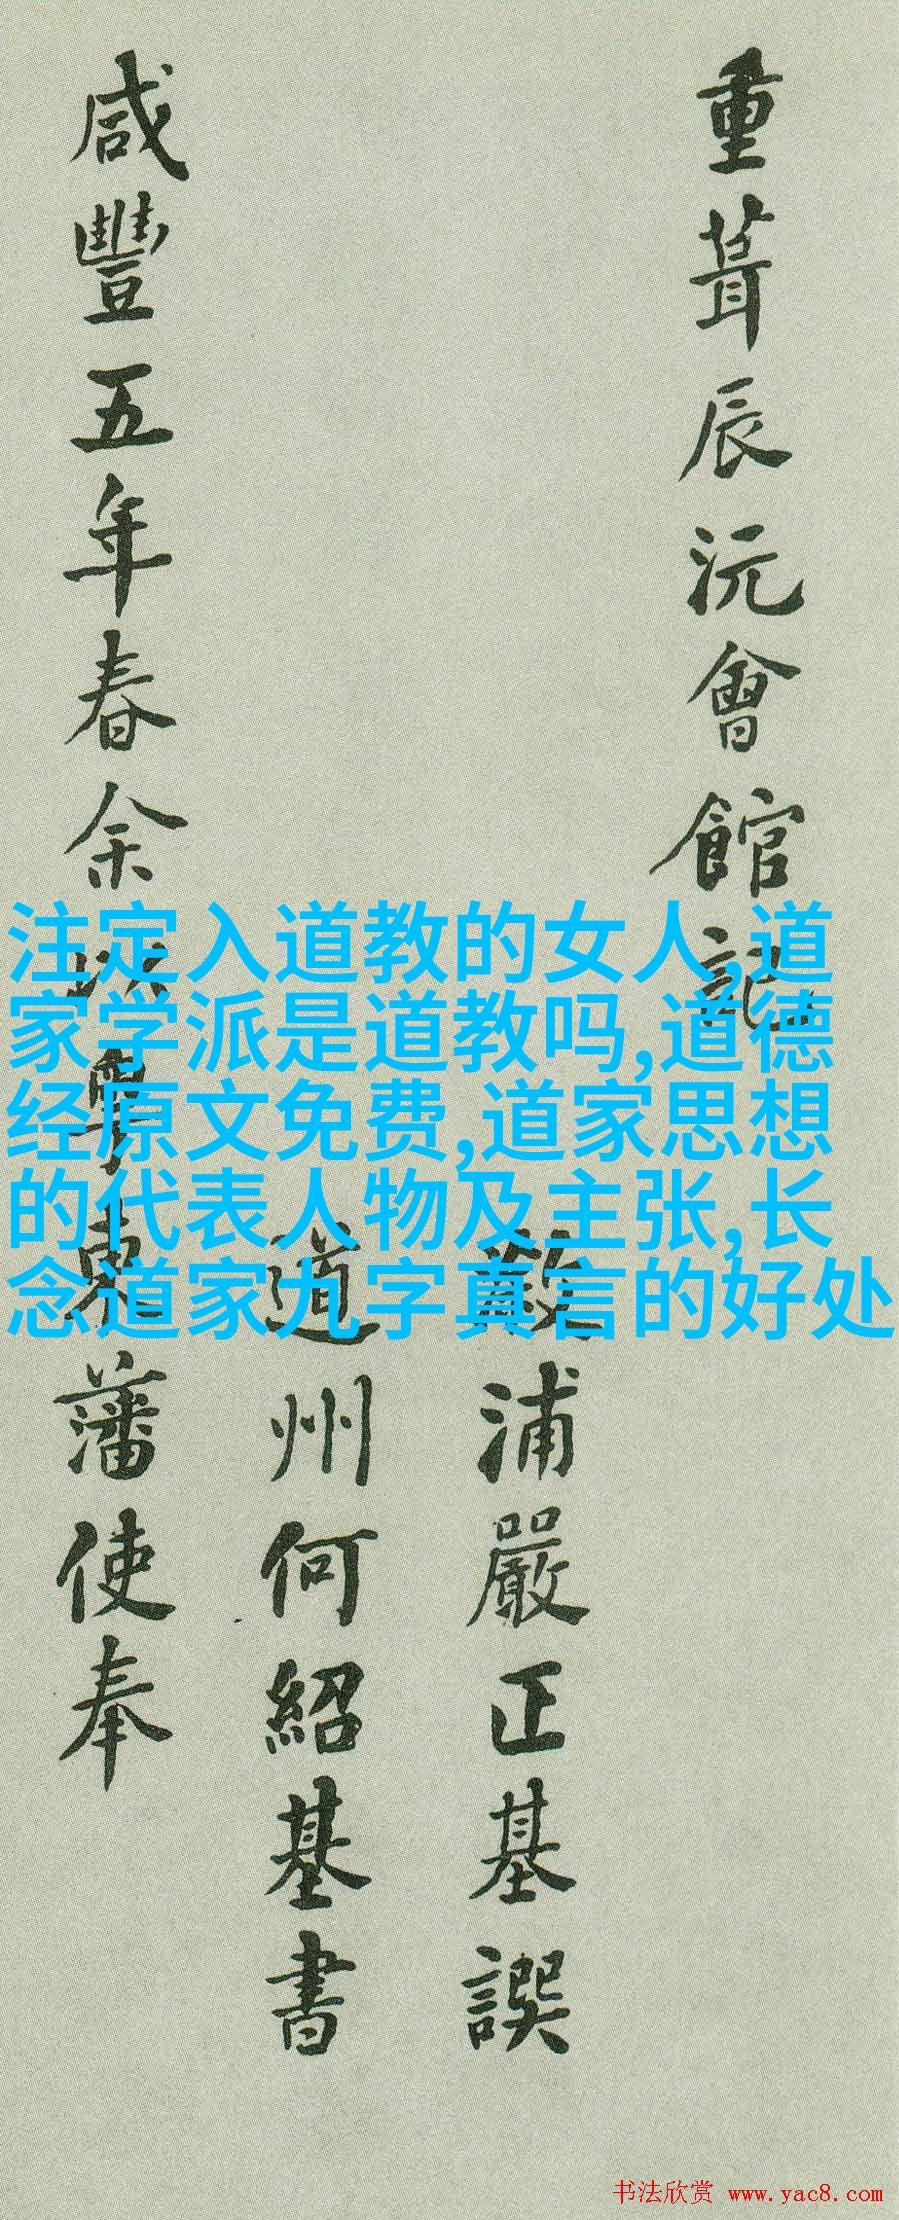 重葺辰沅會館記
漵浦嚴正基譔
道州何紹基書
咸豐五年春余以粤東藩使奉
注定入道教的女人,道
家学派是道教吗,道德
经原文免费,道家思想
的代表人物及主张,长
念道家九字真言的好处
书法欣赏 www.yac8.com